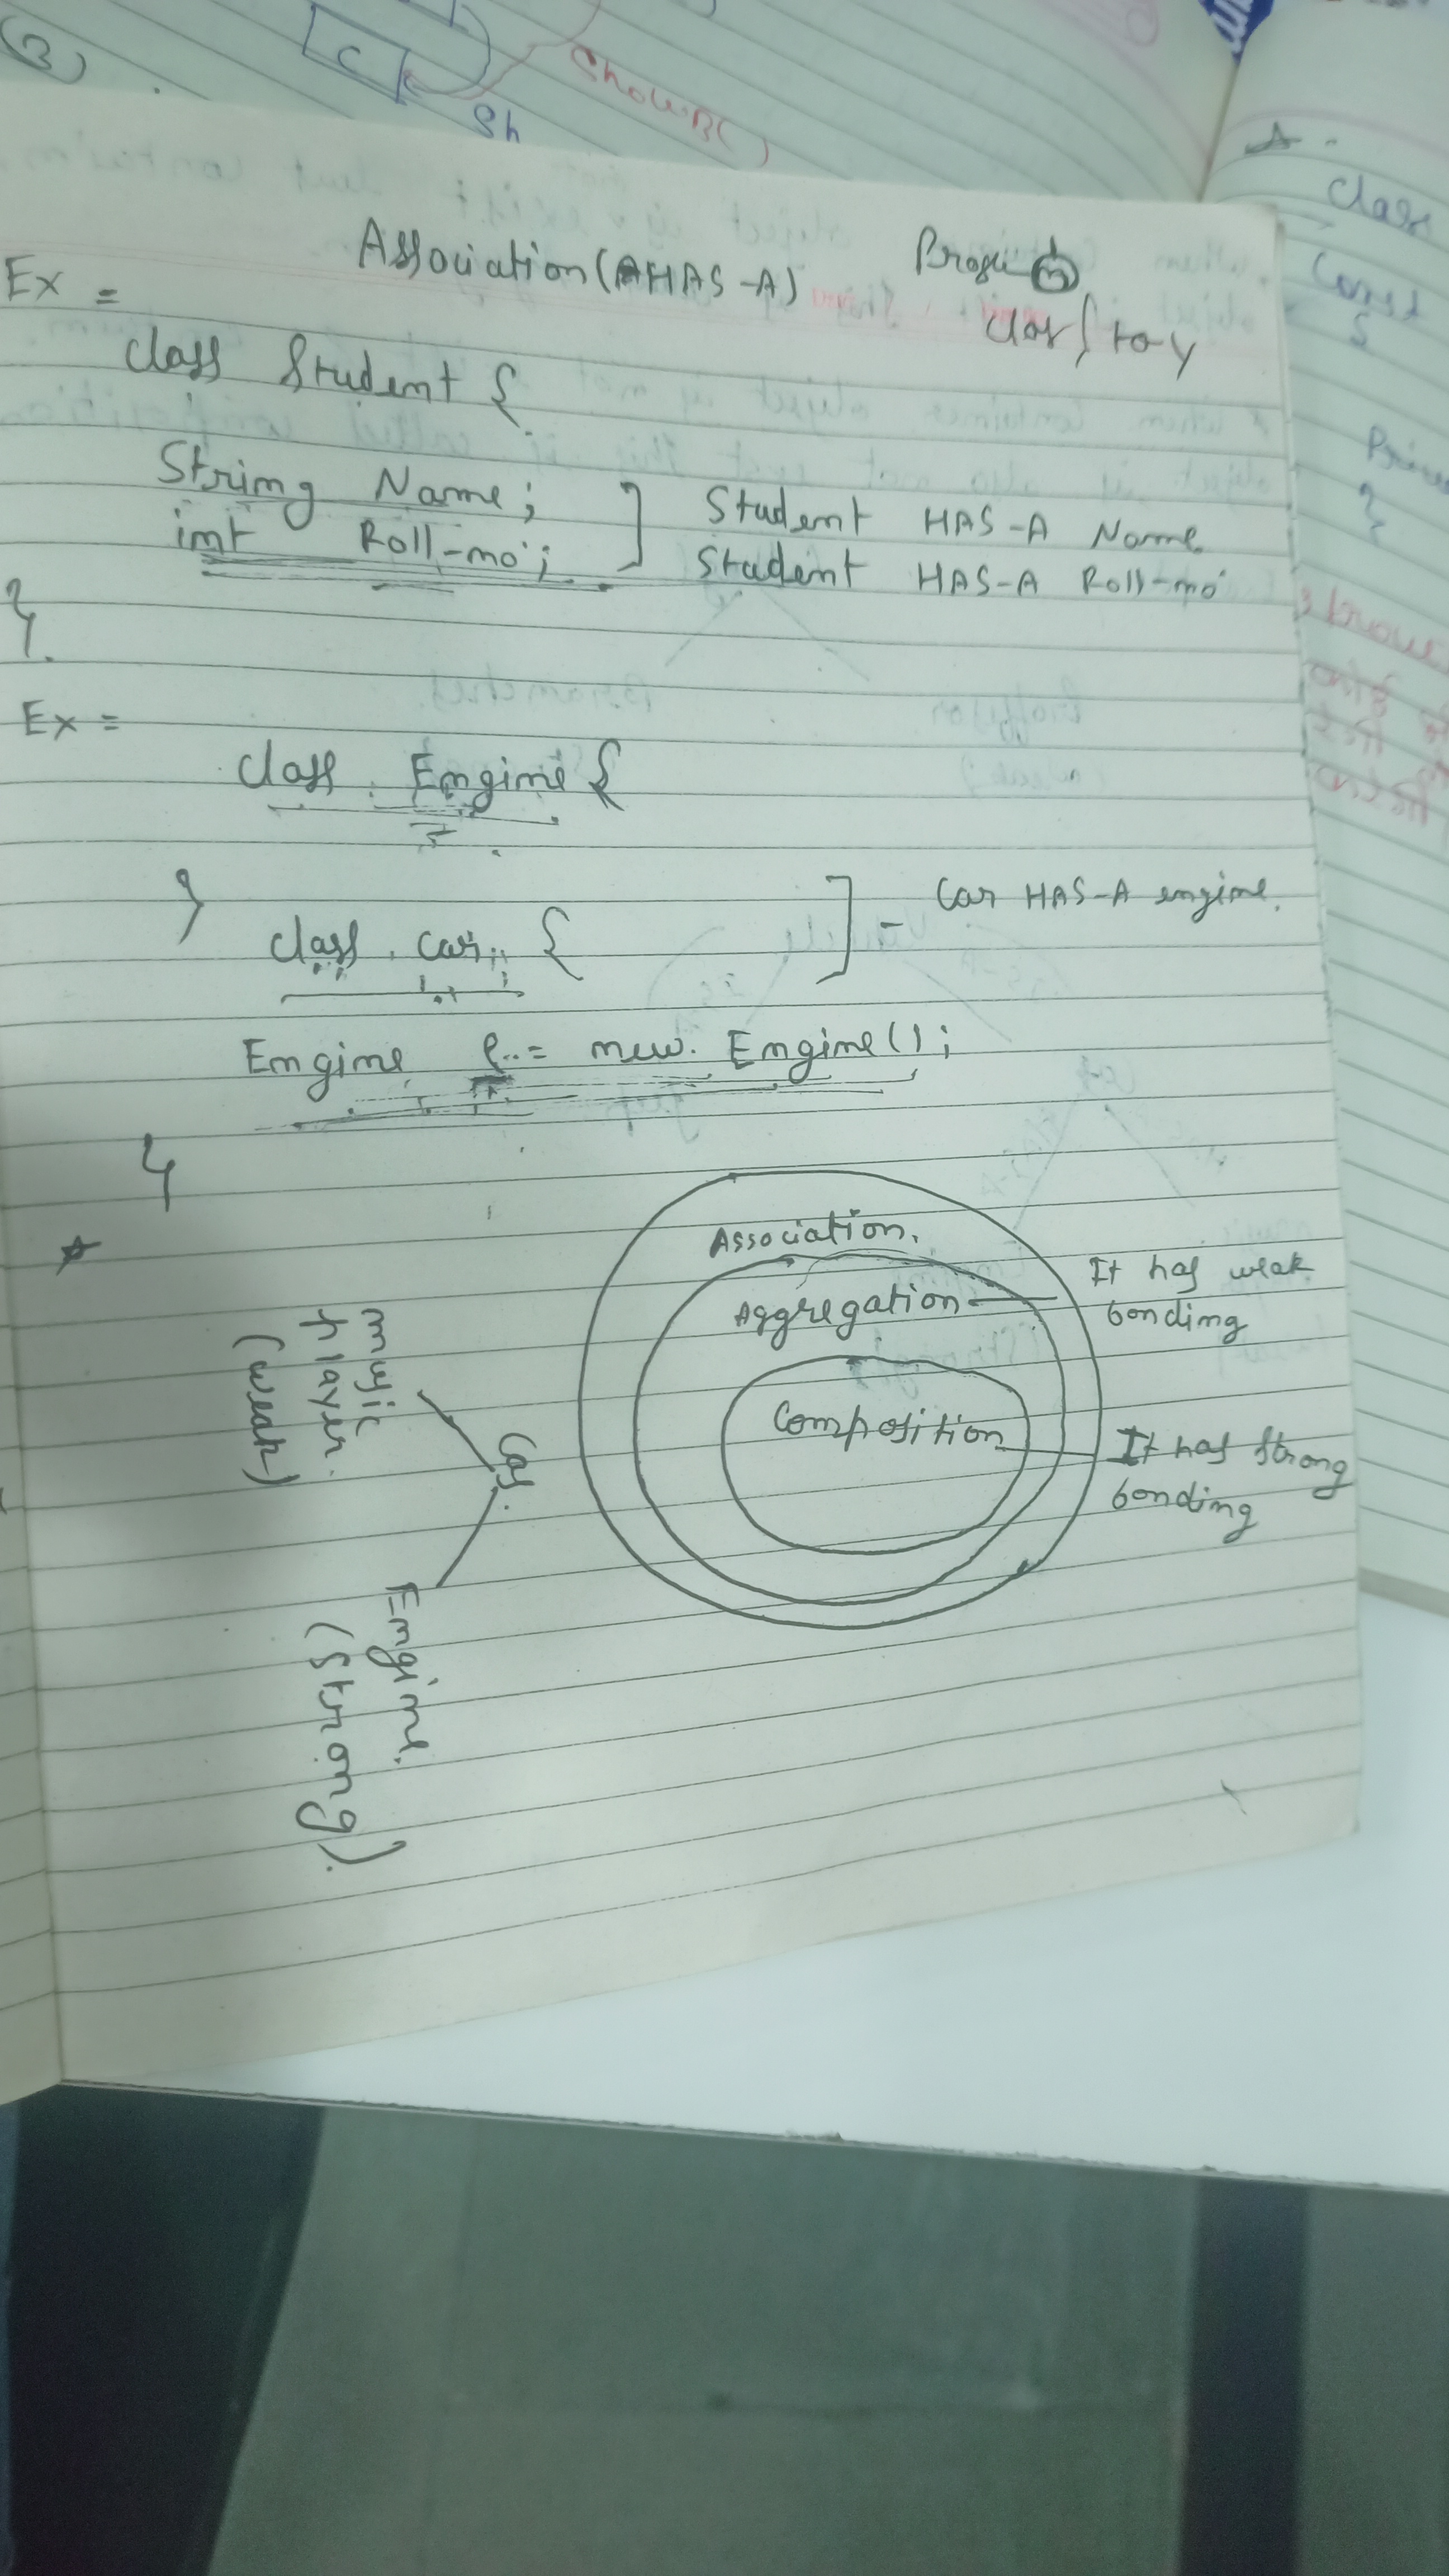 (3)
C
Sh
Show.B()
Association (HAS-A)
Ex =
class Student {
String Name;
int Roll-no;
Student HAS-A Name
Student HAS-A Roll-no
}
Ex =
class Engine {
}
class car {
- Car HAS-A engine.
Engine e = new Engine();
}
Association.
Aggregation
It has weak
bonding
Composition
It has strong
bonding
Car.
music
player.
(weak)
Engine.
(strong).
class